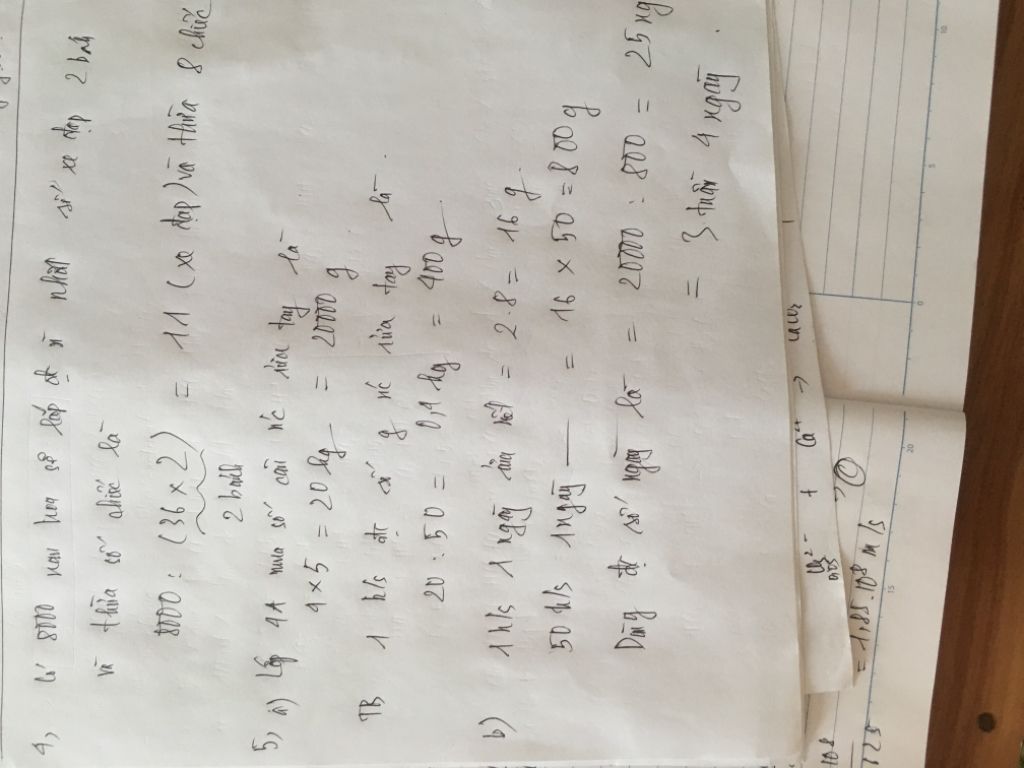 4, Có 8000 nan hoa sẽ lắp đt nhiều nhất số xe đạp 2 bánh
và thừa số chiếc là
8000 : (36 x 2) = 11 (xe đạp) và thừa 8 chiếc
2 bánh
5, a) Lớp 4A mua số cân nc rửa tay là
4 x 5 = 20 kg = 20000 g
TB 1 h/s đt số g nc rửa tay là
20 : 50 = 0,4 kg = 400 g
b) 1 h/s 1 ngày rửa hết = 2.8 = 16 g
50 h/s 1 ngày — = 16 x 50 = 800 g
Dùng đt số ngày là = 20000 : 800 = 25 ng
= 3 tuần 4 ngày
+ Ca →
= 1,85.10⁸ m/s
10⁸